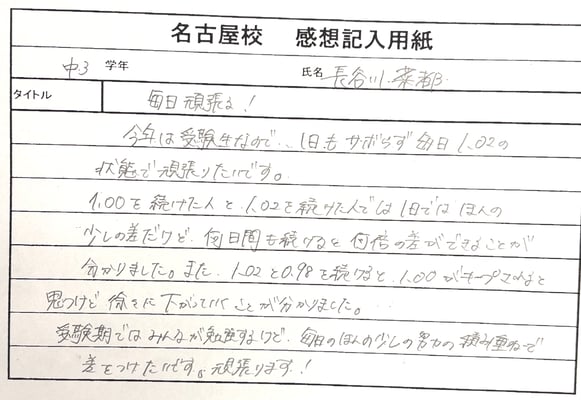 名古屋校 感想記入用紙
中3 学年 氏名 長谷川 菜都
タイトル 毎日頑張る!
今年は受験生なので、1日もサボらず毎日1.02の
状態で頑張りたいです。
1.00を続けた人と1.02を続けた人では1日ではほんの
少しの差だけど、何日間も続けると何倍の差ができることが
分かりました。また、1.02と0.98を続けると、1.00がキープされると
思うけど徐々に下がっていくことが分かりました。
受験期ではみんなが勉強するけど、毎日のほんの少しの努力の積み重ねで
差をつけたいです。頑張ります!